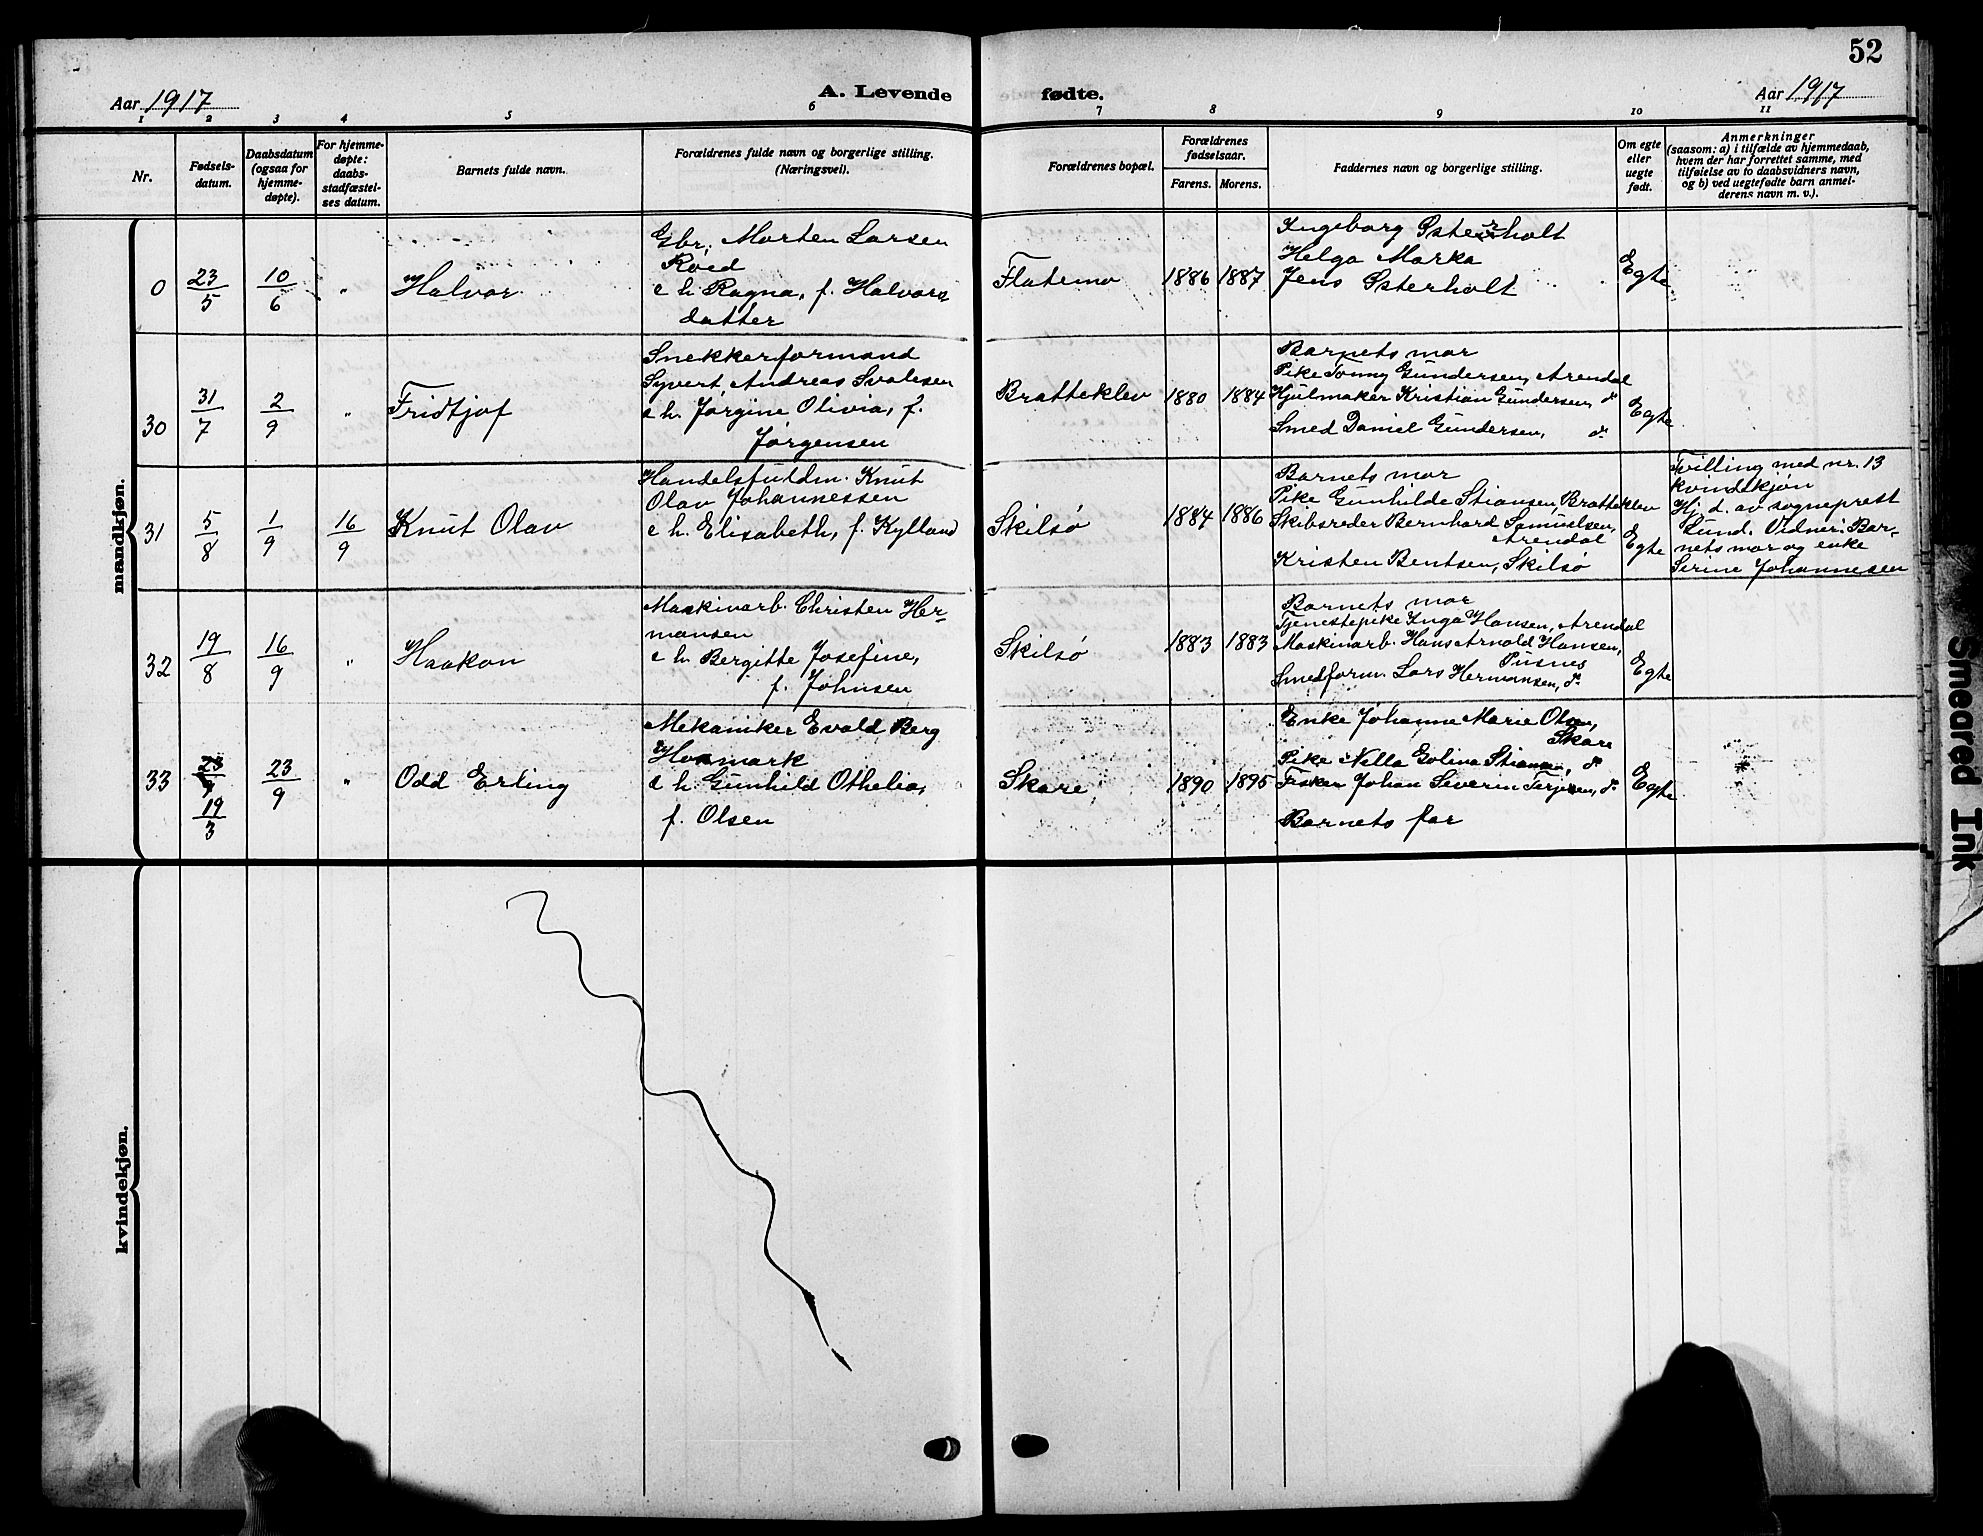 52
Aar 1917
A. Levende
fødte.
Aar 1917
1 2 3 4 5 6 7 8 9 10 11
Nr.
Fødsels-
datum.
Daabsdatum
(ogsaa for
hjemme-
døpte).
For hjemme-
døpte:
daabs-
stadfæstel-
ses datum.
Barnets fulde navn.
Forældrenes fulde navn og borgerlige stilling.
(Næringsvei).
Forældrenes bopæl.
Forældrenes
fødselsaar.
Farens. Morens.
Faddernes navn og borgerlige stilling.
Om egte
eller
uegte
født.
Anmerkninger
(saasom: a) i tilfælde av hjemmedaab,
hvem der har forrettet samme, med
tilføielse av to daabsvidners navn,
og b) ved uegtefødte barn anmel-
derens navn m. v.).
mandkjøn.
0
23/5
10/6
"
Halvor
Gbr. Morten Larsen
Røed
e h. Ragna, f. Halvors
datter
Flatemo
1886 1887
Ingeborg Østerholt
Helga Marka
Jens Østerholt
Egte
30
31/7
2/9
"
Fridtjof
Snekkerformand
Syvert Andreas Svalesen
e h. Jørgine Olivia, f.
Jørgensen
Bratteklev
1880 1884
Barnets mor
Pike Tonny Gundersen, Arendal
Hjulmaker Kristian Gundersen, do
Smed Daniel Gundersen, do
Egte
31
5/8
1/9
16/9
Knut Olav
Handelsfuldm. Knut
Olav Johannessen
e h. Elisabeth, f. Kylland
Skilsø
1884 1886
Barnets mor
Pike Gunhilde Stiansen, Bratteklev
Skibsreder Bernhard Samuelsen,
Arendal
Kristen Bentsen, Skilsø
Egte
Tvilling med nr. 13
kvindekjøn
Hj. d. av sogneprest
Sund. Vidner: Bar-
nets mor og enke
Serine Johannesen
32
19/8
16/9
"
Haakon
Maskinarb. Christen Her-
mansen
e h. Bergitte Josefine,
f. Johnsen
Skilsø
1883 1883
Barnets mor
Tjenestepike Inga Hansen, Arendal
Maskinarb. Hans Arnold Hansen,
Pusnes
Smedform. Lars Hermansen, do
Egte
33
19/3
23/9
"
Odd Erling
Mekaniker Evald Berg
Hommark
e h. Gunhild Othelia,
f. Olsen
Skare
1890 1895
Enke Johanne Marie Olsen,
Skare
Pike Nella Golina, do
Fisker Johan Severin Terjesen, do
Barnets far
Egte
kvindekjøn.
Smeared Ink